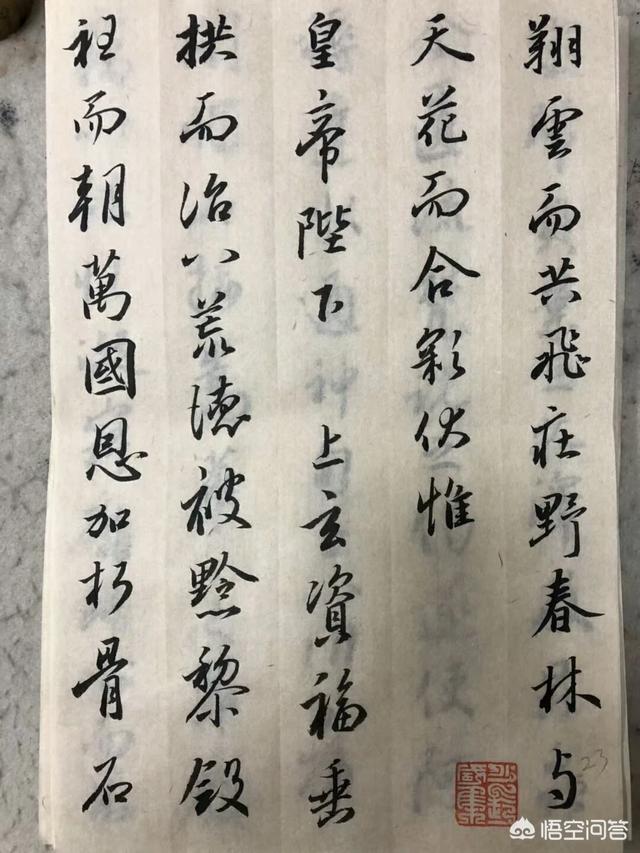 翔雲而共飛莊野春林与
天花而合彩伏惟
皇帝陛下 上玄資福垂
拱而治八荒德被黔黎斂
衽而朝萬國恩加朽骨石
23
悟空问答